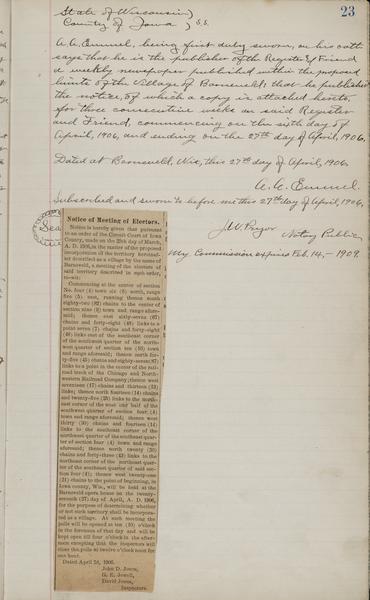 23
State of Wisconsin)
County of Iowa ) S.S.
A. A. Emmel, being first duly sworn, on his oath
says that he is the publisher of the Register & Friend
a weekly newspaper published within the proposed
limits of the Village of Barneveld; that he published
the notice, of which a copy is attached hereto,
for three consecutive weeks in said Register
and Friend, commencing on the sixth day of
April, 1906, and ending on the 27th day of April, 1906.
Dated at Barneveld, Wis, this 27th day of April, 1906.
A. A. Emmel.
Subscribed and sworn to before me this 27th day of April, 1906,
J.W. Pryor
Notary Public
My Commission expires Feb. 14, - 1909.
Sea
Notice of Meeting of Electors.
Notice is hereby given that pursuant
to an order of the Circuit Court of Iowa
County, made on the day of March,
A. D. 1906, in the matter of the proposed
incorporation of the territory hereinaf-
ter described as a village by the name of
Barneveld, a meeting of the electors of
said territory described in such order,
to-wit:
Commencing at the center of section
No. four (4) town six (6) north, range
five (5) east, running thence south
eighty-two (82) chains to the center of
section nine (9) town and range afore-
said; thence east sixty-seven (67)
chains and forty-eight (48) links to a
point seven (7) chains and forty-eight
(48) links east of the southeast corner
of the southwest quarter of the north-
west quarter of section ten (10) town
and range aforesaid; thence north for-
ty-five (45) chains and eighty-seven (87)
links to a point in the center of the rail-
road track of the Chicago and North-
western Railroad Company; thence west
seventeen (17) chains and thirteen (13)
links; thence north fourteen (14) chains
and twenty-five (25) links to the north-
east corner of the west one half of the
southwest quarter of section four (4)
town and range aforesaid; thence west
thirty (30) chains and fourteen (14)
links to the southeast corner of the
northwest quarter of the southeast quar-
ter of section four (4) town and range
aforesaid; thence north twenty (20)
chains and forty-three (43) links to the
northeast corner of the northwest quar-
ter of the southeast quarter of said sec-
tion four (4); thence west twenty-one
(21) chains to the point of beginning, in
Iowa county, Wis., will be held at the
Barneveld opera house on the twenty-
seventh (27) day of April, A. D. 1906,
for the purpose of determining whether
or not such territory shall be incorporat-
ed as a village. At such meeting the
polls will be opened at ten (10) o'clock
in the forenoon of that day and will be
kept open till four o'clock in the after-
noon excepting that the inspectors will
close the polls at twelve o'clock noon for
one hour.
Dated April 2d, 1906.
John D. Jones,
G. E. Jewell,
David Jones,
Inspectors.